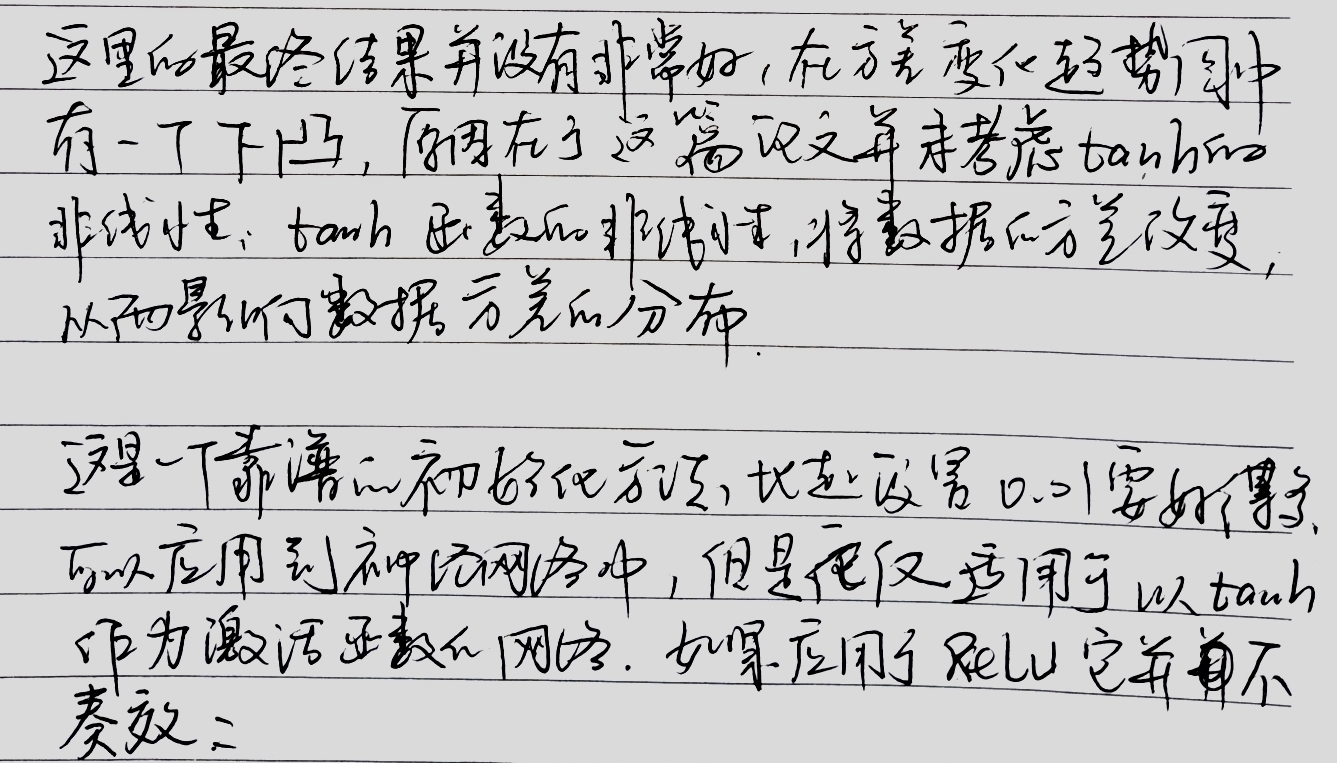 这里的最终结果并没有非常好,在方差变化趋势图中
有一个下凹,原因在于这篇论文并未考虑tanh的
非线性. tanh函数的非线性,将数据的方差改变,
从而影响数据方差的分布.
这是一个靠谱的初始化方法,比起设置0.01要好得多.
可以应用到神经网络中,但是它仅适用于以tanh
作为激活函数的网络. 如果应用于ReLU它并不
奏效: